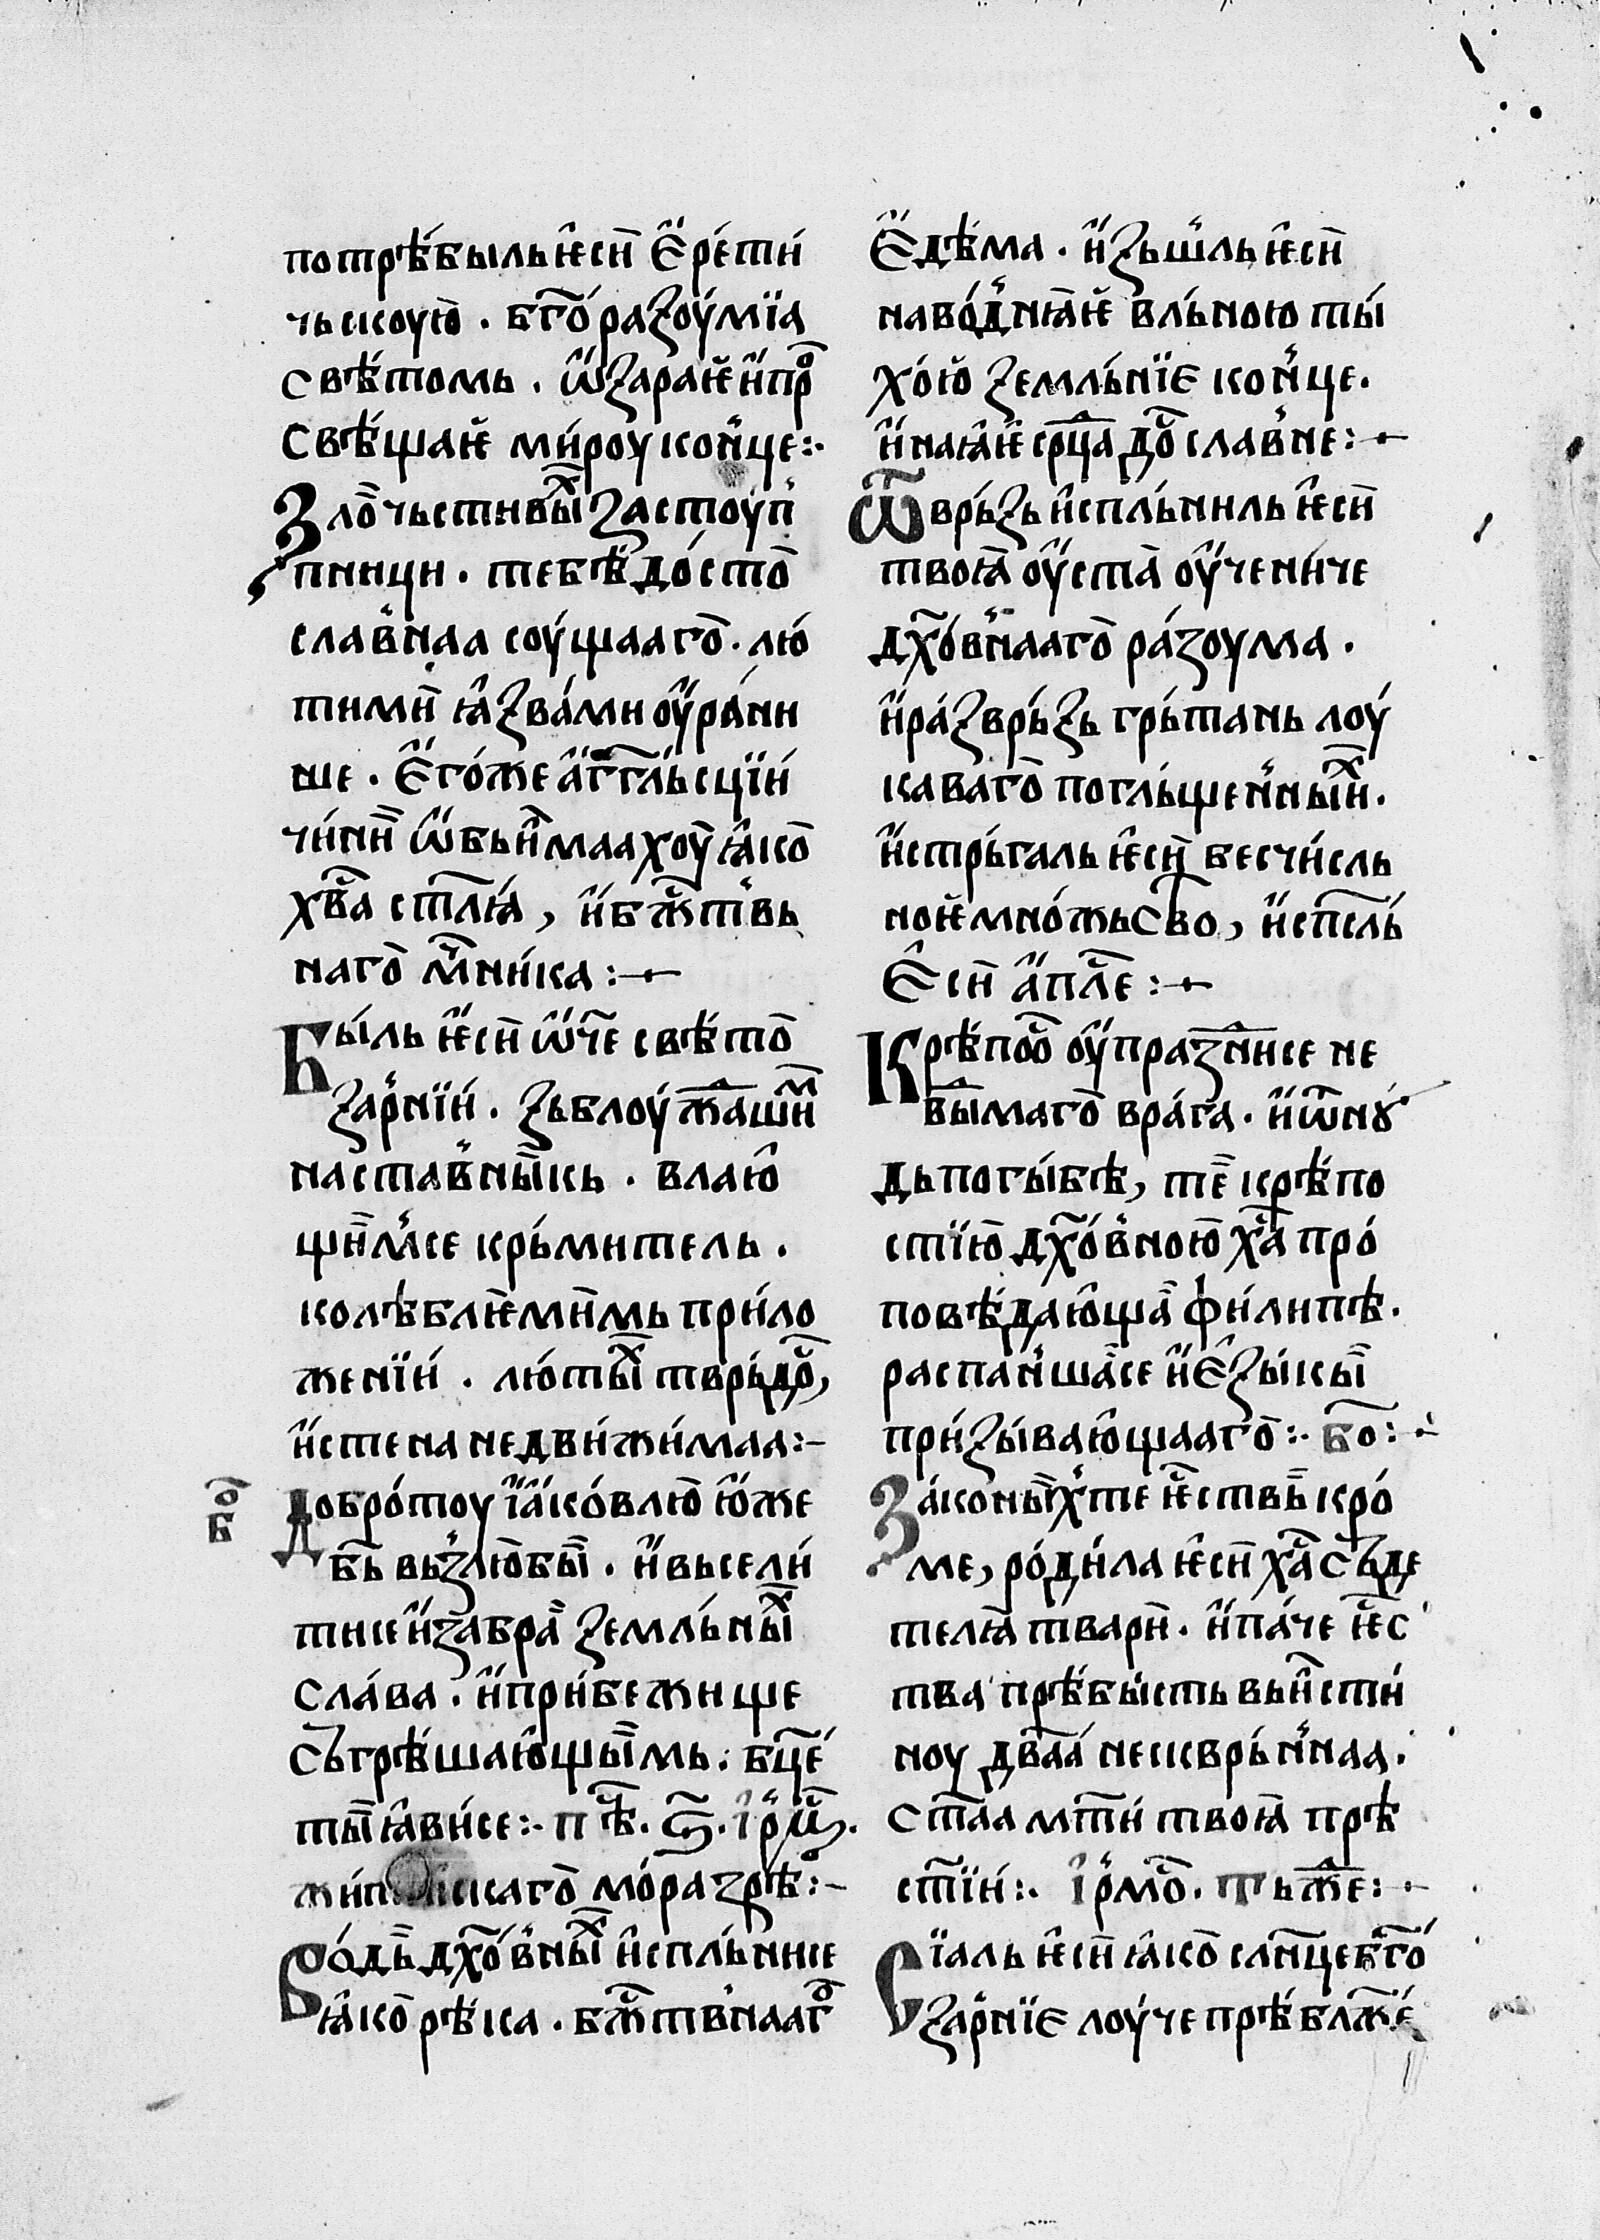 потрѣ́быль ѥ҆сѝ Є҆ре́ти
чьскоую̀. бг҃о́разоу́мїа
свѣ́томь. ѡ҆заранѥ и҆про
свѣ́щанѥ ми́роу кон҆це:·
Зло̀чьстивы̏х застоуп
пници. тебѣ̏ до́сто
слав҆наа соу́щааго̀. лю́
тимѝ ꙗ҆зва́ми оу҆ра́ни
ше. Є҆го́же а҆гг҃льсцїи
чи́нѝ ѡ҆бьи҆маахоу̀ ꙗ҆ко̀
хв҃а ст҃лꙗ́, и҆бж҃тв҆ь
наго̀ м҃ни́ка:·
Бы́ль ѥ҆сѝ ѡ҆ч҃е свѣ́то̀
зар҆нїи́. зьблоуж҃ашим
настав҆ны̏кь. влаю҆
щи̏м҆се крь́митель.
колѣблѥми̏мь при́ло
женїи́. лю́ты̏х тврьдо,
и҆стена недви́жи́маа:·
об
Добро́тоу і҆а҆ко́влю̀ ю҆же
бь҃ вьз҆лю̀бы̏. и҆вьсели́
тисе и҆забра̏ земль́ны̏х
сла́ва. и҆при́бежище
Сьгрѣ́шаю҆щы̏мь. бц҃е́
ты̏ ꙗ҆ви́се:· пѣ. ѕ҃. і҆рм.
скаго̀ мо́ра зрѣ:·
Во́дь̏ дх҃о́в҆ны̏х и҆спль́нисе
ꙗ҆ко̀ рѣ́ка. бж҃тв҆нааг
Є҆дѣ́ма. и҆зьш҆ль ѥ҆сѝ
наво́д҆нꙗ̀ѥ вль́ною ты́
хо́ю҆ земль́нїе кон҆це.
и҆наꙗ҆ѥ ср҃ца до̀славь҆не:·
Ѿврь́зь и҆спль́ниль ѥ҆сѝ
твоꙗ̀ оу҆ста̀ оу҆чени́че
дх҃о́в҆нааго̀ ра́зоума.
и҆ра́зврь́зь грь́тань лоу́
каваго̀ погль́щен҆ны̏хи.
и҆стрь́галь ѥ҆сѝ бесчи́сль
ноѥ мно́жьСтво, и҆сп҃ль́
Є҆сѝ а҆пл҃е:·
Крѣ́посо оу҆праз҃нисе не
ви҃маго̀ вра́га. и҆ѿнꙋ
дь погы́бѣ, те̏ крѣ́по
стїю̀ дх҃о́в҆ною̀ х҃а про́
повѣ́даю҆ща̏ фи́липѣ.
распан҆ша̏се и҆Є҆зы́кы̏
при́зы́ваю҆щааго̀:· бо҃:·
За́коны̏х҆те ѥ҆ствь̏ кро́
ме, ро́ди́ла ѥ҆сѝ х҃а Сьде
телꙗ̀ тварѝ. и҆па́че ѥ҆с
тва прѣ́бы́сть вьи҆сти́
ноу дв҃аа́ нескврь́н҆наа.
ст҃аа мт҃и́ твоꙗ̀ прѣ
ст҃їи́:· І҆рмо. тьж҃е:·
Сїаль ѥ҆сѝ ꙗ҆ко̀ слн҃це бг҃о́
зар҆нїе лоу́че прѣ́блж҃е́